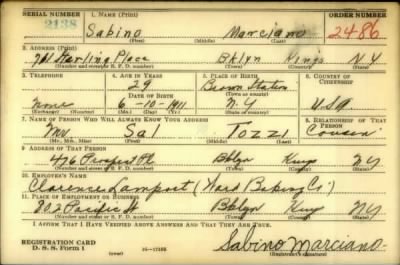 SERIAL NUMBER 1. NAME (Print) ORDER NUMBER
2138 Sabino Marciano 2486
(First) (Middle) (Last)
2. ADDRESS (Print)
761 Sterling Place Bklyn Kings N.Y.
(Number and street or R. F. D. number) (Town) (County) (State)
3. TELEPHONE 4. AGE IN YEARS 5. PLACE OF BIRTH 6. COUNTRY OF CITIZENSHIP
29
DATE OF BIRTH (Town or county)
none 6-10-1911 N.Y. USA
(Exchange) (Number) (Mo.) (Day) (Yr.) (State or country)
7. NAME OF PERSON WHO WILL ALWAYS KNOW YOUR ADDRESS 8. RELATIONSHIP OF THAT PERSON
Mr. Sal Tozzi Cousin
(Mr., Mrs., Miss) (First) (Middle) (Last)
9. ADDRESS OF THAT PERSON
476 Prospect Pl Bklyn Kings NY
(Number and street or R. F. D. number) (Town) (County) (State)
10. EMPLOYER'S NAME
Clarence Lamport (Ward Baking Co.)
11. PLACE OF EMPLOYMENT OR BUSINESS
802 Pacific St Bklyn Kings NY
(Number and street or R. F. D. number) (Town) (County) (State)
I AFFIRM THAT I HAVE VERIFIED ABOVE ANSWERS AND THAT THEY ARE TRUE.
REGISTRATION CARD Sabino Marciano
D. S. S. Form 1 (over) (Registrant's signature)